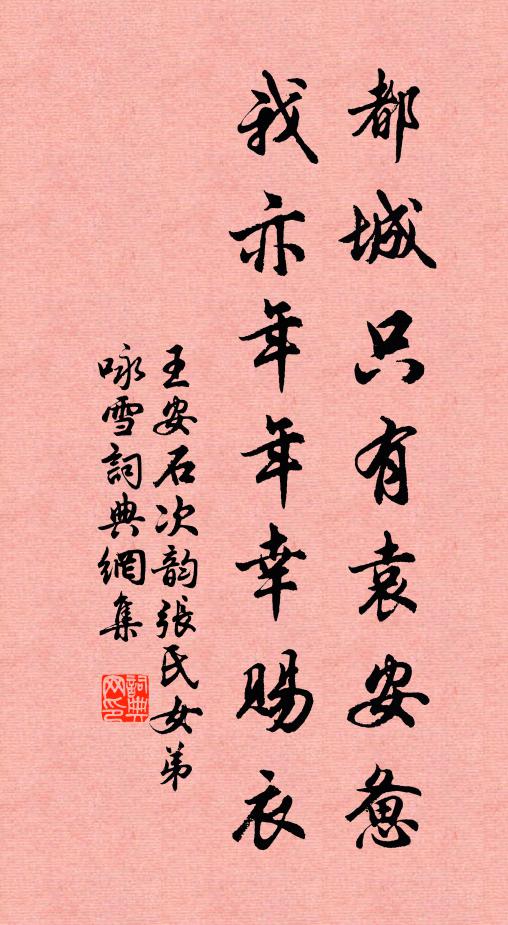 都城只有袁安憊
我亦年年幸賜衣
王安石次韵張氏女弟
咏雪詞典網集
詞典
网印